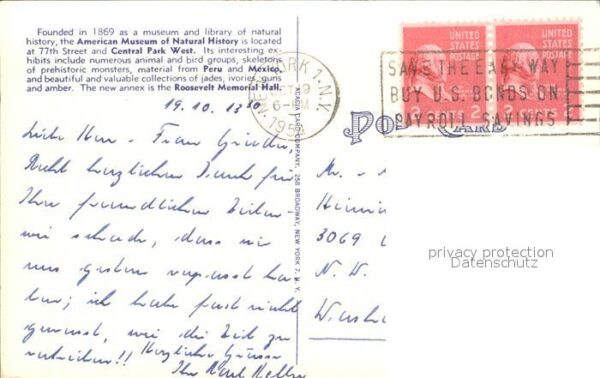 Founded in 1869 as a museum and library of natural
history, the American Museum of Natural History is located
at 77th Street and Central Park West. Its interesting ex-
hibits include numerous animal and bird groups, skeletons
of prehistoric monsters, material from Peru and Mexico,
and beautiful and valuable collections of jades, ivories, guns
and amber. The new annex is the Roosevelt Memorial Hall.
19.10. 1330
Liebe Herr - Frau
Recht herzlichen Dank für
Ihre freundlichen Zeilen -
wie schade, dass wir
uns gestern verpasst ha-
ben; ich habe fast nicht
gewusst, wie die Zeit zu
vertreiben!! Herzliche Grüsse
Ihr Karl Keller
ACACIA CARD COMPANY, 258 BROADWAY, NEW YORK 7, N. Y.
NEW YORK 1, N.Y.
OCT 19
6 - PM
UNITED STATES POSTAGE
UNITED STATES POSTAGE
2 CENTS 2
2 CENTS 2
SAVE THE EASY WAY
BUY U.S. BONDS ON
PAYROLL SAVINGS
POST CARD
Mr. -
3069
N. W.
privacy protection
Datenschutz